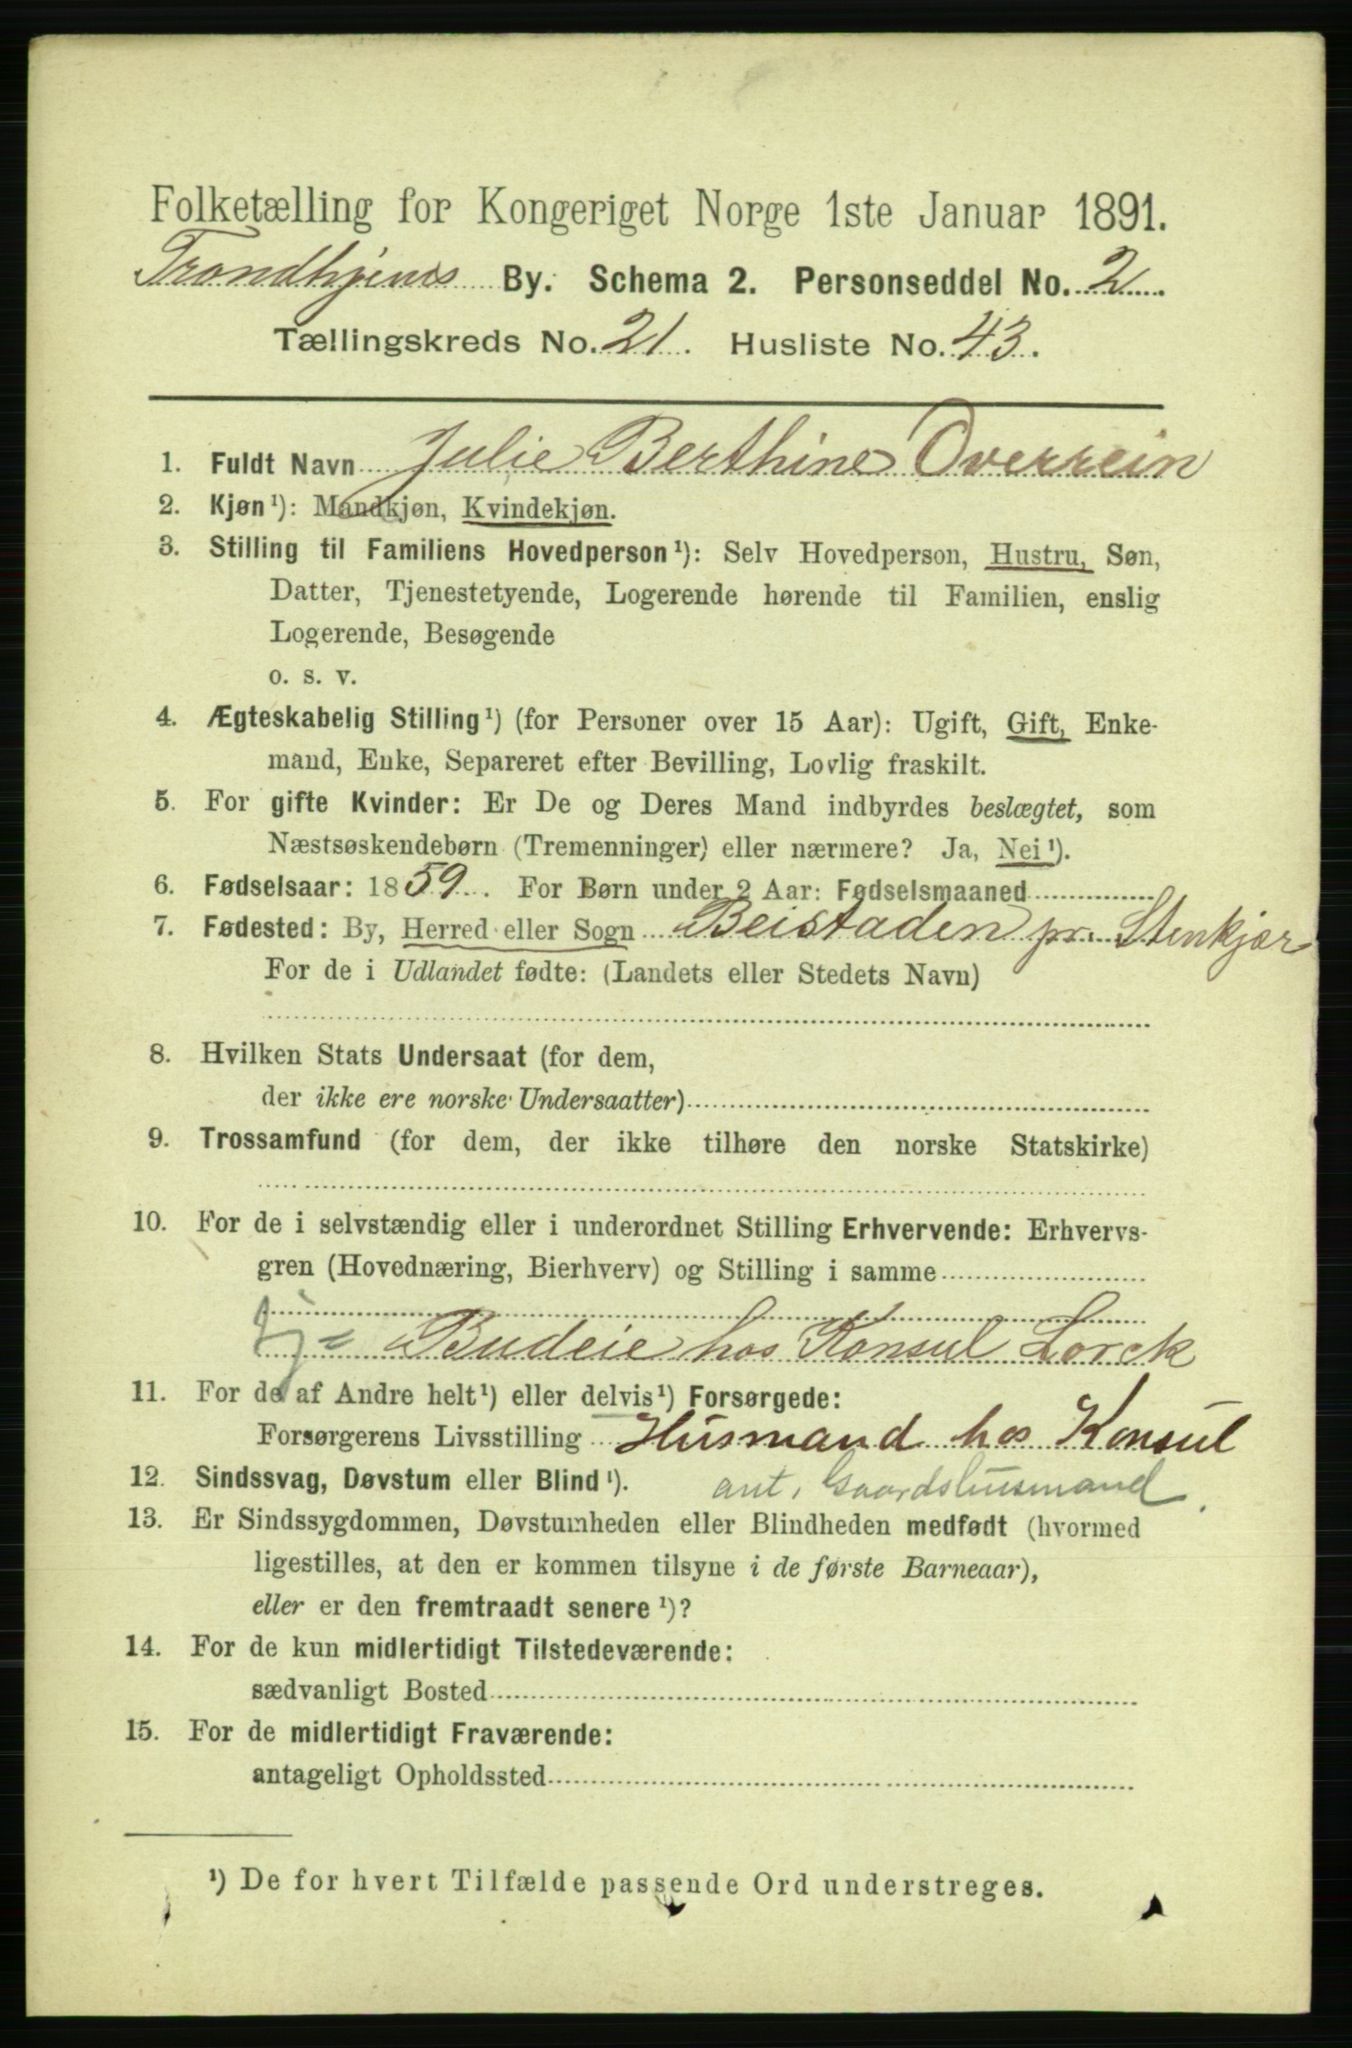 Folketælling for Kongeriget Norge 1ste Januar 1891.
Trondhjems By. Schema 2. Personseddel No. 2
Tællingskreds No. 21. Husliste No. 43.
1. Fuldt Navn Julie Berthine Overrein
2. Kjøn¹): Mandkjøn, Kvindekjøn.
3. Stilling til Familiens Hovedperson¹): Selv Hovedperson, Hustru, Søn,
Datter, Tjenestetyende, Logerende hørende til Familien, enslig
Logerende, Besøgende
o. s. v.
4. Ægteskabelig Stilling¹) (for Personer over 15 Aar): Ugift, Gift, Enke-
mand, Enke, Separeret efter Bevilling, Lovlig fraskilt.
5. For gifte Kvinder: Er De og Deres Mand indbyrdes beslægtet, som
Næstsøskendebørn (Tremenninger) eller nærmere? Ja, Nei¹).
6. Fødselsaar: 1859. For Børn under 2 Aar: Fødselsmaaned
7. Fødested: By, Herred eller Sogn Beistaden pr. Stenkjær
For de i Udlandet fødte: (Landets eller Stedets Navn)
8. Hvilken Stats Undersaat (for dem,
der ikke ere norske Undersaatter)
9. Trossamfund (for dem, der ikke tilhøre den norske Statskirke)
10. For de i selvstændig eller i underordnet Stilling Erhvervende: Erhvervs-
gren (Hovednæring, Bierhverv) og Stilling i samme
Budeie hos Konsul Lorck
11. For de af Andre helt¹) eller delvis¹) Forsørgede:
Forsørgerens Livsstilling Husmand hos Konsul
12. Sindssvag, Døvstum eller Blind¹). ant. Gaardshusmand
13. Er Sindssygdommen, Døvstumheden eller Blindheden medfødt (hvormed
ligestilles, at den er kommen tilsyne i de første Barneaar),
eller er den fremtraadt senere¹)?
14. For de kun midlertidigt Tilstedeværende:
sædvanligt Bosted
15. For de midlertidigt Fraværende:
antageligt Opholdssted
¹) De for hvert Tilfælde passende Ord understreges.